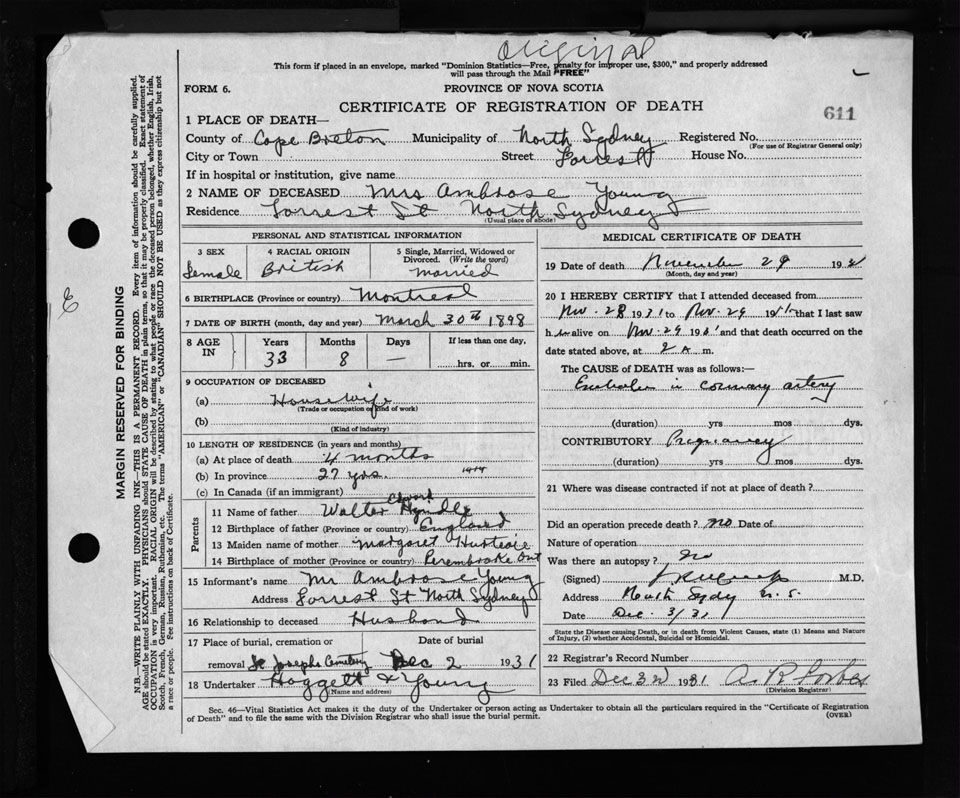 Original
This form if placed in an envelope, marked "Dominion Statistics—Free, penalty for improper use, $300," and properly addressed
will pass through the Mail "FREE"
FORM 6. PROVINCE OF NOVA SCOTIA
CERTIFICATE OF REGISTRATION OF DEATH
611
1 PLACE OF DEATH—
County of Cape Breton Municipality of North Sydney Registered No.
(For use of Registrar General only)
City or Town Street Forrest House No.
If in hospital or institution, give name
2 NAME OF DECEASED Mrs Ambrose Young
Residence Forrest St North Sydney
(Usual place of abode)
PERSONAL AND STATISTICAL INFORMATION
3 SEX Female
4 RACIAL ORIGIN British
5 Single, Married, Widowed or Divorced. (Write the word) married
6 BIRTHPLACE (Province or country) Montreal
7 DATE OF BIRTH (month, day and year) March 30th 1898
8 AGE IN Years 33 Months 8 Days — If less than one day, hrs. or min.
9 OCCUPATION OF DECEASED
(a) Housewife
(Trade or occupation or kind of work)
(b)
(Kind of industry)
10 LENGTH OF RESIDENCE (in years and months)
(a) At place of death 4 months
(b) In province 27 yrs.
(c) In Canada (if an immigrant)
Parents
11 Name of father Walter Edward
12 Birthplace of father (Province or country) England
13 Maiden name of mother Margaret
14 Birthplace of mother (Province or country) Ont
15 Informant's name Mr Ambrose Young
Address Forrest St North Sydney
16 Relationship to deceased Husband
17 Place of burial, cremation or removal St Josephs Cemetery Date of burial Dec 2 1931
18 Undertaker Haggett & Young
(Name and address)
MEDICAL CERTIFICATE OF DEATH
19 Date of death November 29 193
(Month, day and year)
20 I HEREBY CERTIFY that I attended deceased from
Nov. 28 1931 to Nov. 29 1931 that I last saw
her alive on Nov. 29 1931 and that death occurred on the
date stated above, at 2 a m.
The CAUSE of DEATH was as follows:—
in coronary artery
(duration) yrs mos dys.
CONTRIBUTORY Pregnancy
(duration) yrs mos dys.
21 Where was disease contracted if not at place of death?
Did an operation precede death? no Date of
Nature of operation
Was there an autopsy? No
(Signed) M.D.
Address North Sydney N. S.
Date Dec. 3/31
State the Disease causing Death, or in death from Violent Causes, state (1) Means and Nature
of Injury, (2) whether Accidental, Suicidal or Homicidal.
22 Registrar's Record Number
23 Filed Dec 3rd 1931 A. R. Forbes
(Division Registrar)
Sec. 46—Vital Statistics Act makes it the duty of the Undertaker or person acting as Undertaker to obtain all the particulars required in the "Certificate of Registration
of Death" and to file the same with the Division Registrar who shall issue the burial permit. (OVER)
MARGIN RESERVED FOR BINDING
N.B.—WRITE PLAINLY WITH UNFADING INK—THIS IS A PERMANENT RECORD. Every item of information should be carefully supplied.
AGE should be stated EXACTLY. PHYSICIANS should STATE CAUSE OF DEATH in plain terms, so that it may be properly classified. Exact statement of
OCCUPATION is very important. RACIAL ORIGIN will be described by stating to what people or race the deceased person belonged, whether English, Irish,
Scotch, French, German, Russian, Ruthenian, etc. The terms "AMERICAN" or "CANADIAN" SHOULD NOT BE USED as they express citizenship but not
a race or people. See instructions on back of Certificate.